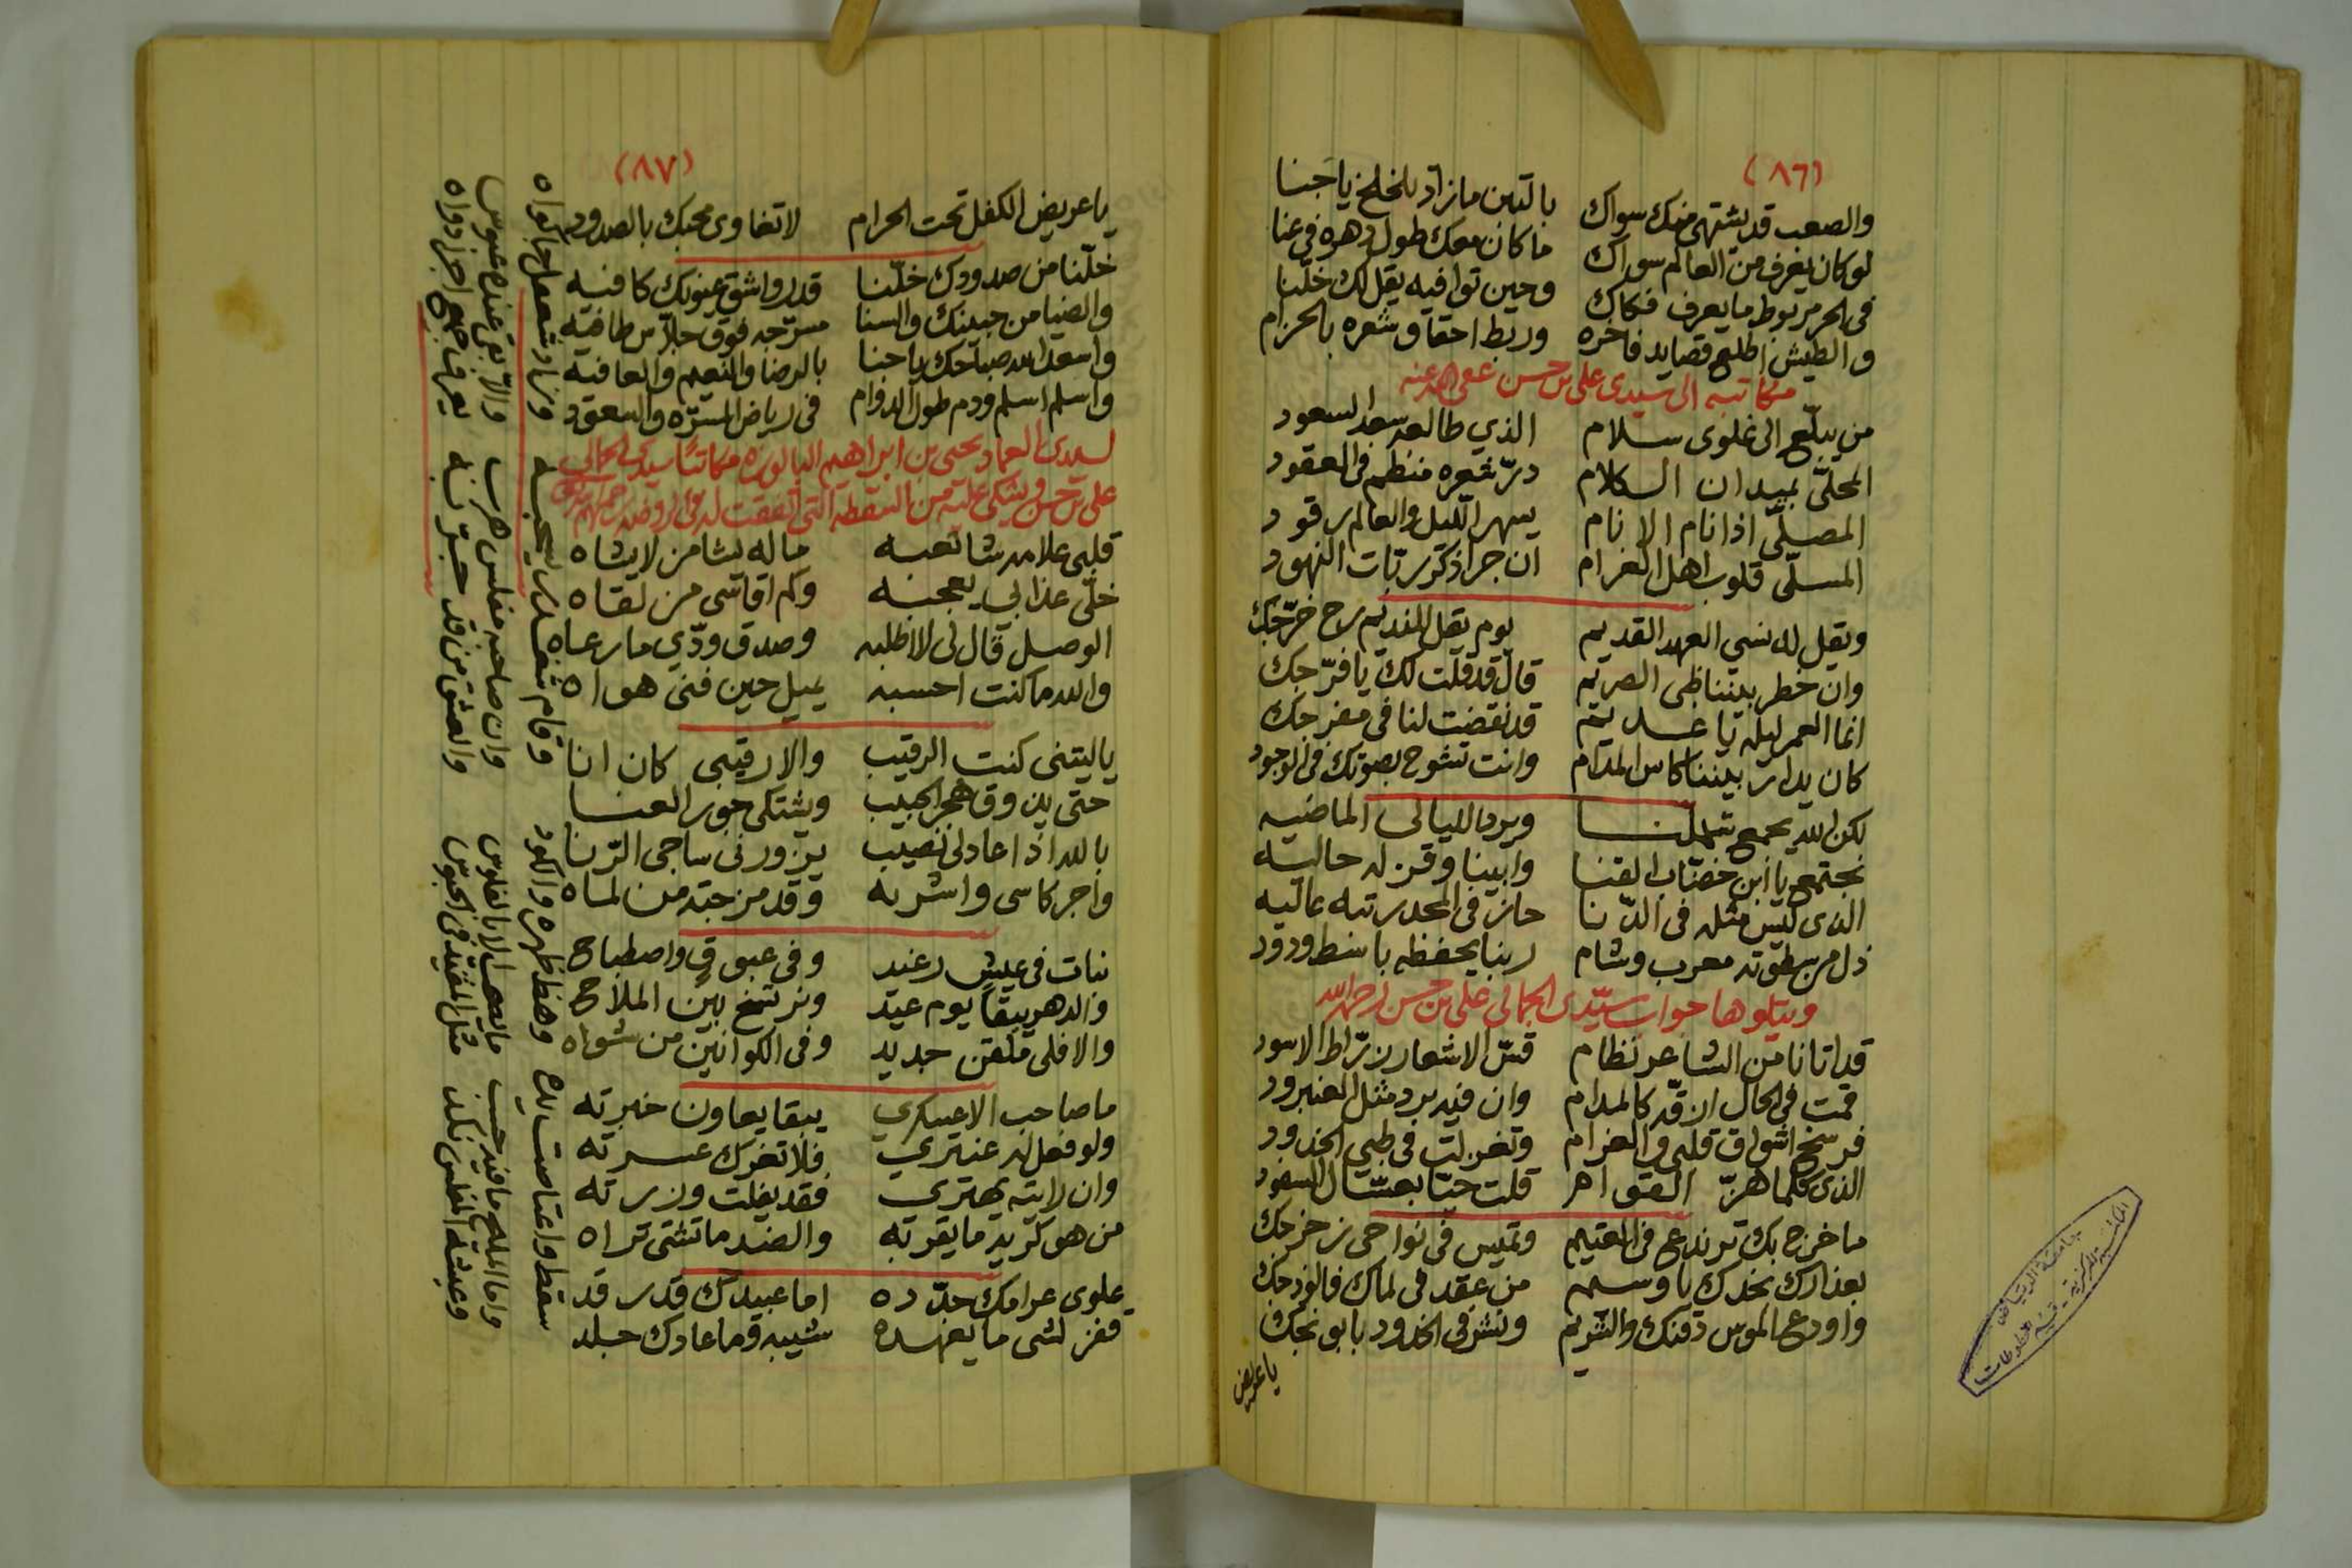 (٨٦)
والصعب قد يشتهي منك سواك بالتين مازاد يا جنا
لو كان يغرف من العالم سواك ما كان معك طول دهره في عنا
في الحر مربوط ما يعرف فكاك وحين توافيه يقل لك خلنا
والطيش اطلع قصايد فاخره وربط احقاق شعره بالحزام
مكاتبه الى سيدي علي بن حسن عفى الله عنه
من يبلغ الى علوى سلام الذي طالعه سعد السعود
المحلي بميدان الكلام در شعره منتظم في العقود
المصلي اذا نام الانام يسهر الليل والعالم رقود
المسلي قلوب اهل الغرام ان جرا ذكر ربات النهود
ويقل له نسي العهد القديم يوم يقل للنديم سرح خرجك
وان خطر بيننا ظبي الصريم قال قد قلت لك يا فرجك
انما العمر ليله يا عديم قد نقضت لنا في مفرجك
كان يدار بيننا كاس المدام وانت تشوح بصوتك في الوجود
لكن الله يجمع شملنا ويرد الليالي الماضيه
نجتمع يا ابن خضاب القنا وابينا وقن له حاليه
الذي ليس مثله في الدنا حاز في المجد رتبه عاليه
ذل من سطوته معرب وشام ربنا يحفظه باسط ودود
ويتلوها جواب سيدي الجمالي علي بن حسن رحمه الله
قد اتانا من الشاعر نظام قس الاشعار زراط الاسود
قمت في الحال ارقه كالمدام وان فيه برد مثل العنبرود
فرسخ اشواق قلبي والغرام وتغزلت في ظبي الخدود
الذي كلما هز القوام قلت حيا بعسال السفود
ما خرج بك تريدع في العتيم وتميس في نواحي زخرجك
بعذارك بخدك يا وسيم من عقد في لماك فالوذجك
واودع الموس ذقنك والشريم ونشر في الخدود بابونجك
يا عريض
جامعة الرياض
(٨٧)
يا عريض الكفل تحت الحرام لا تغاوى محبك بالصدود
خلنا من صدودك خلنا قد رواشق عيونك كافيه
والضيا من جبينك والسنا مسرجه فوق جلاس طافيه
واسعد الله صباحك يا جنا بالرضا والنعيم والعافيه
واسلم اسلم ودم طول الدوام في رياض المسره والسعود
لسيدي العماد يحيى بن ابراهيم مكاتبا سيدي الجمالي
علي بن حسن ويشكي عليه من السقطه التي اتفقت له في الروضه
قلبي علامه شا تعبه ما له يشا من لا يشاه
خلي عذابي يعجبه وكم اقاسي من لقاه
الوصل قال لي لا اطلبه وصدق ودي ما رعاه
والله ما كنت احسبه يميل حين فنى هواه
يا ليتني كنت الرقيب والا رقيبي كان انا
حتى يذوق هجر الحبيب ويشتكي جور العنا
بالله اذا عاد لي نصيب يزورني ساجي الرنا
واجر كاسي واشربه وقد مزجته من لماه
نبات في عيش رغيد وفي غبوق واصطباح
والدهر يبقا يوم عيد ونرتسخ بين الملاح
والا فلي ملقن جديد وفي الكوانين من شواه
ما صاحب الا عسكري يبقا يعاون خبرته
ولو فعل له عنتري فلا تغرك عسرته
وان رايته يهتري فقد يفلت وزرته
من هو كريه ما يقربه والضد ما تشتي تراه
علوى عرامك حدده اما عبيدك قد رقد
فقز لشي ما يعهده شيبه وما عادك جلد
سقط واعتاصت اليد وحظ ظهره والكور
وقام شغدري يجبه وزار شعمل جا لواه
واما المليح ما فيه حب ما يصل الا بالفلوس
وان صاحبه مفلس هرب والا بقي عنده عبوس
وعيشة المفلس نكد مثل المقيد في الحبوس
والعشق من قد جربه يعرف ما جهد اجزا دواه